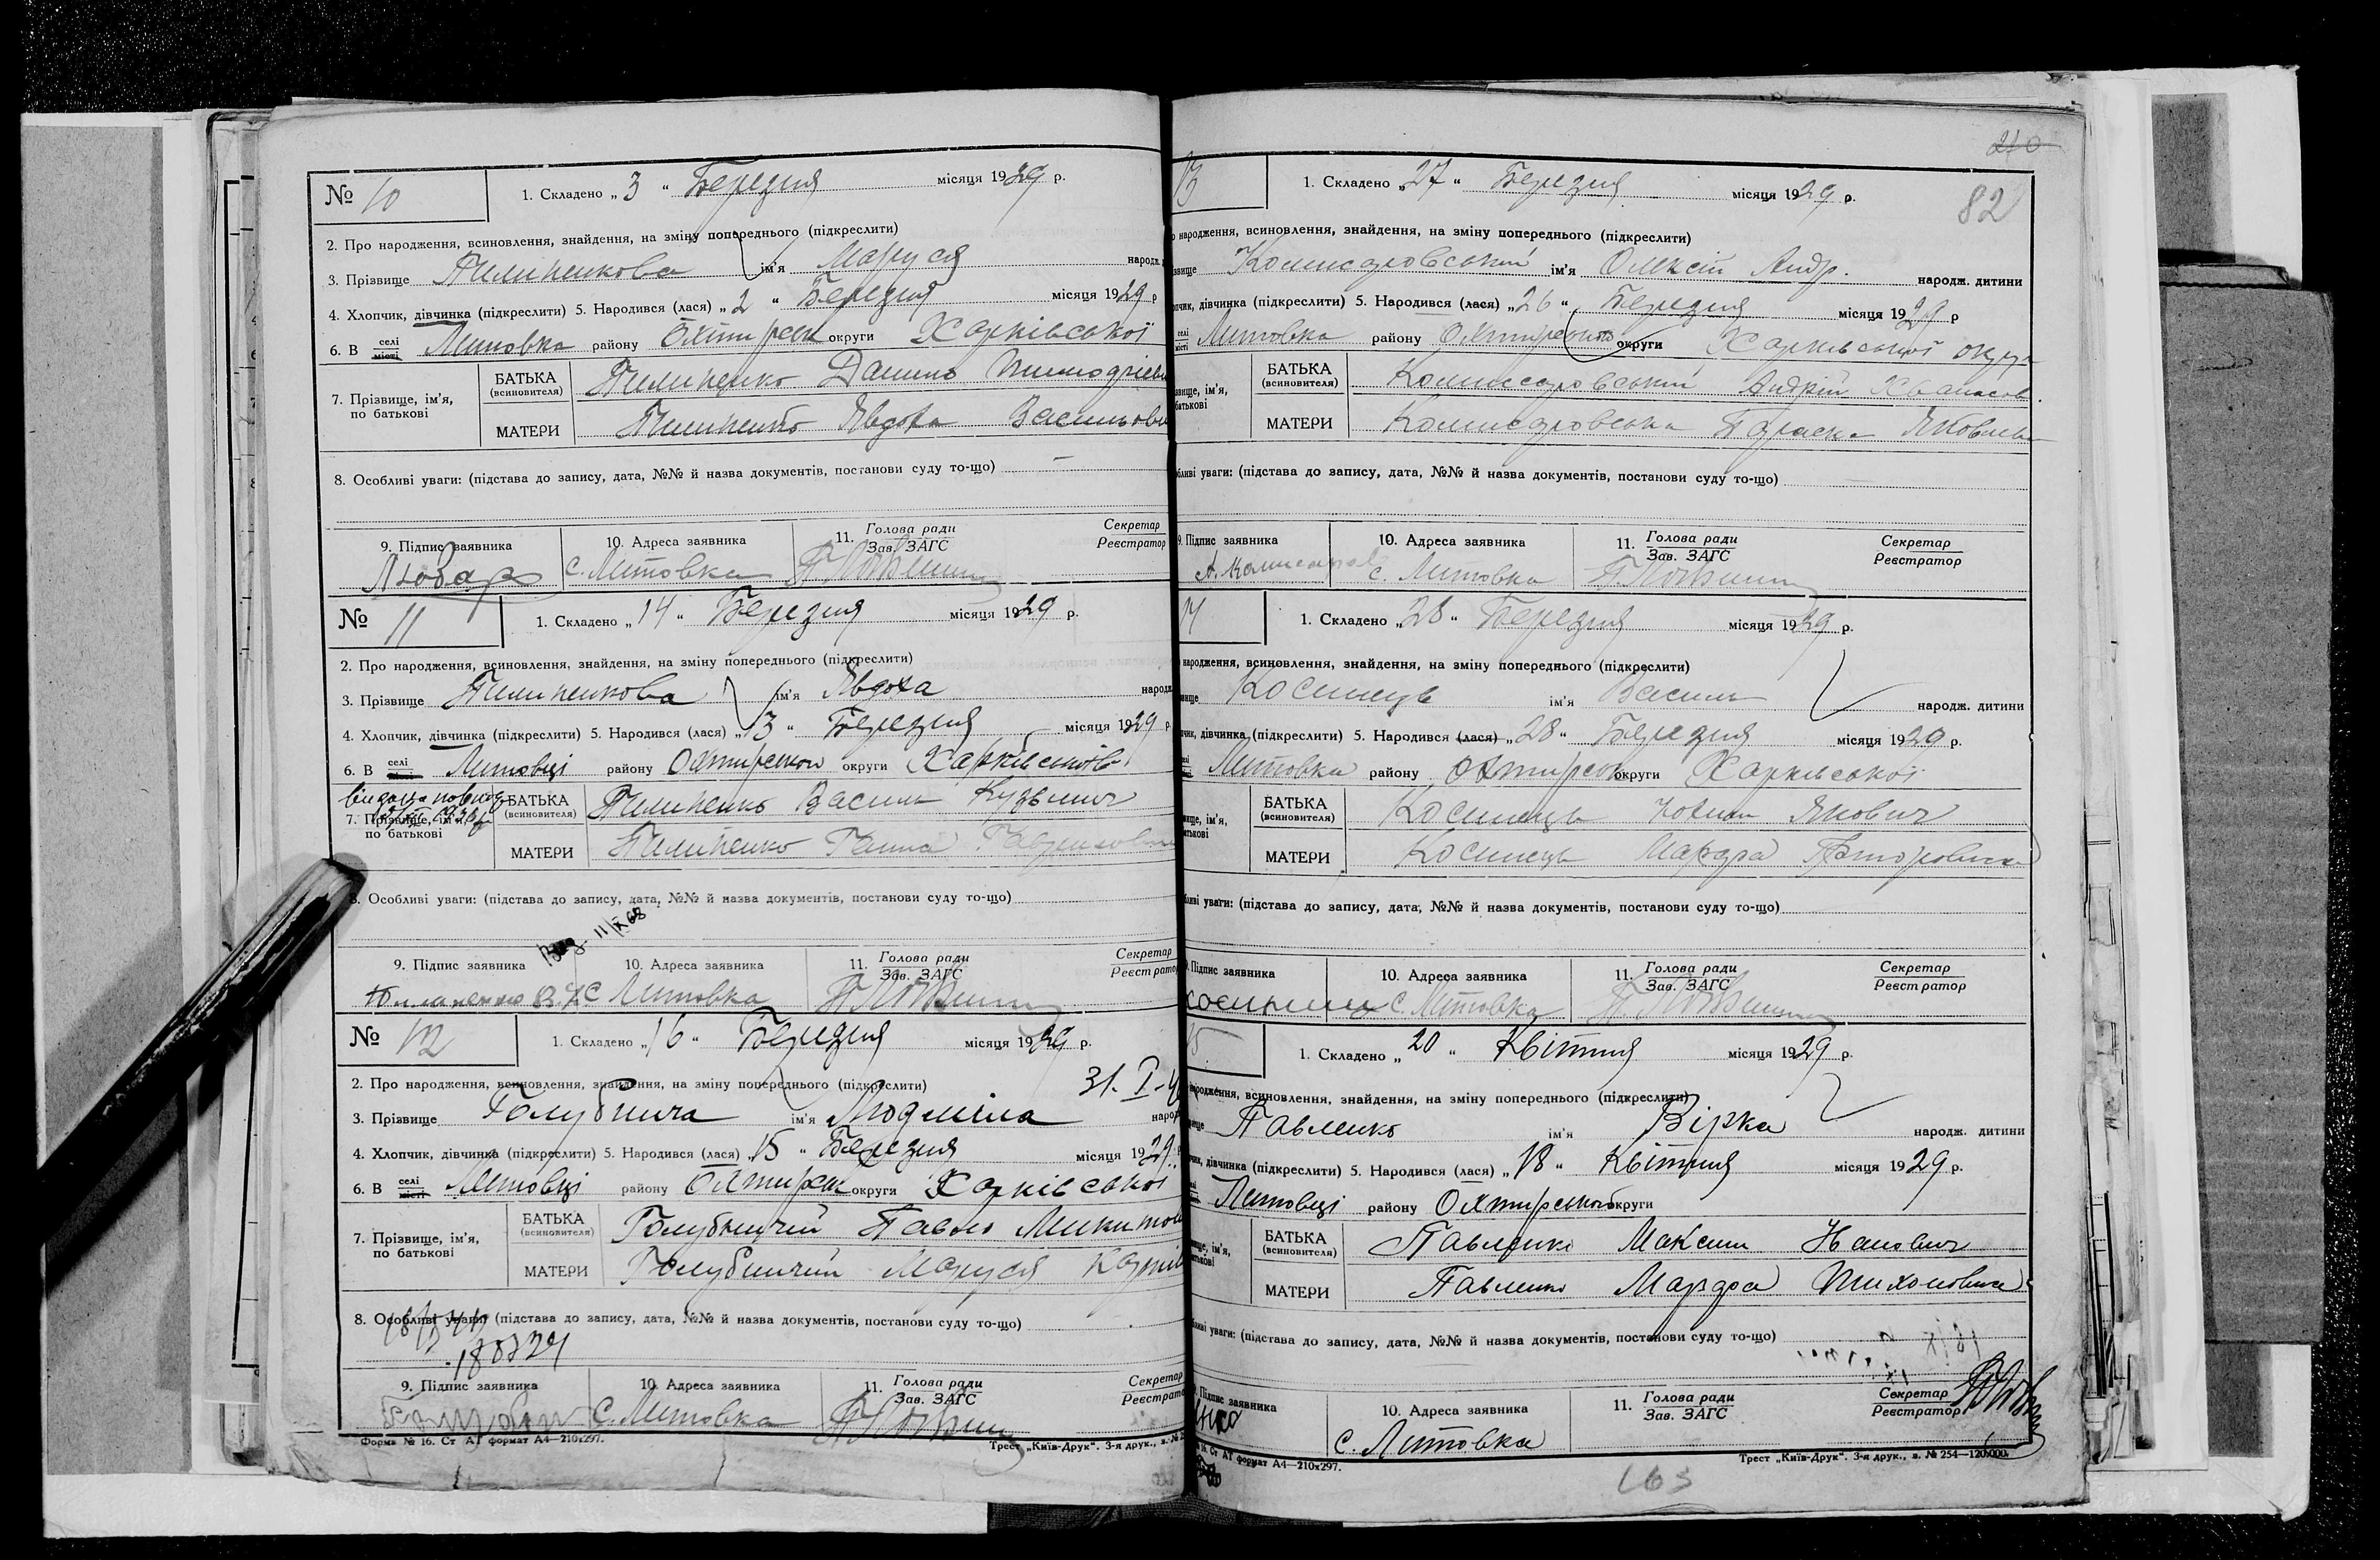 № 10
1. Складено „3“ Березня місяця 1929 р.
2. Про народження, всиновлення, знайдення, на зміну попереднього (підкреслити)
3. Прізвище Пилипенкова ім'я Маруся народж.
4. Хлопчик, дівчинка (підкреслити) 5. Народився (лася) „2“ Березня місяця 1929 р
6. В селі місті Литовка району Охтирськ округи Харківської
7. Прізвище, ім'я, по батькові
БАТЬКА (всиновителя) Пилипенко Данило
МАТЕРИ Пилипенко Явдоха Васильовн
8. Особливі уваги: (підстава до запису, дата, №№ й назва документів, постанови суду то-що) —
9. Підпис заявника 10. Адреса заявника 11. Голова ради Зав. ЗАГС Секретар Реєстратор
с. Литовка
№ 11
1. Складено „14“ Березня місяця 1929 р.
2. Про народження, всиновлення, знайдення, на зміну попереднього (підкреслити)
3. Прізвище Пилипенкова ім'я Явдоха народж
4. Хлопчик, дівчинка (підкреслити) 5. Народився (лася) „13“ Березня місяця 1929 р
6. В селі Литовці району Охтирського округи Харківської
7. Прізвище, ім'я, по батькові
БАТЬКА (всиновителя) Пилипенко Василь Кузьмич
МАТЕРИ Пилипенко Ганна
8. Особливі уваги: (підстава до запису, дата, №№ й назва документів, постанови суду то-що)
11/X 68
9. Підпис заявника 10. Адреса заявника 11. Голова ради Зав. ЗАГС Секретар Реєстратор
Пилипенко В. К. с Литовка
№ 12
1. Складено „16“ Березня місяця 1929 р.
2. Про народження, всиновлення, знайдення, на зміну попереднього (підкреслити) 31. I-
3. Прізвище Голубнича ім'я Людміла народ
4. Хлопчик, дівчинка (підкреслити) 5. Народився (лася) „15“ Березня місяця 1929 р
6. В селі місті Литовці району Охтирськ округи Харківської
7. Прізвище, ім'я, по батькові
БАТЬКА (всиновителя) Голубничий Павло Микитов
МАТЕРИ Голубничий Маруся
8. Особливі уваги: (підстава до запису, дата, №№ й назва документів, постанови суду то-що)
9. Підпис заявника 10. Адреса заявника 11. Голова ради Зав. ЗАГС Секретар Реєстратор
с. Литовка
Форма № 16. Ст АГ формат А4—210x297.
Трест „Київ-Друк“. 3-я друк., з. №
210
82
13
1. Складено „27“ Березня місяця 1929 р.
народження, всиновлення, знайдення, на зміну попереднього (підкреслити)
звище Комисаровський ім'я Олексій Андр. народж. дитини
пчик, дівчинка (підкреслити) 5. Народився (лася) „26“ Березня місяця 1929 р
селі місті Литовка району Охтирського округи Харківської округ
звище, ім'я, батькові
БАТЬКА (всиновителя) Комисаровський Андрій
МАТЕРИ Комисаровська Параска Яковлев
бливі уваги: (підстава до запису, дата, №№ й назва документів, постанови суду то-що)
9. Підпис заявника 10. Адреса заявника 11. Голова ради Зав. ЗАГС Секретар Реєстратор
с. Литовка
14
1. Складено „28“ Березня місяця 1929 р.
народження, всиновлення, знайдення, на зміну попереднього (підкреслити)
вище Косинець ім'я Василь народж. дитини
чик, дівчинка (підкреслити) 5. Народився (лася) „28“ Березня місяця 1929 р.
Литовка району Охтирськ округи Харківської
вище, ім'я, атькові
БАТЬКА (всиновителя) Косинець Юхим Якович
МАТЕРИ Косинець Марфа
ливі уваги: (підстава до запису, дата, №№ й назва документів, постанови суду то-що)
Підпис заявника 10. Адреса заявника 11. Голова ради Зав. ЗАГС Секретар Реєстратор
с. Литовка
15
1. Складено „20“ Квітня місяця 1929 р.
народження, всиновлення, знайдення, на зміну попереднього (підкреслити)
Павленко ім'я Вірка народж. дитини
чик, дівчинка (підкреслити) 5. Народився (лася) „18“ Квітня місяця 1929 р.
Литовці району Охтирського округи
вище, ім'я, атькові
БАТЬКА (всиновителя) Павленко Максим Іванович
МАТЕРИ Павленко Марфа Тихоновна
ливі уваги: (підстава до запису, дата, №№ й назва документів, постанови суду то-що)
Підпис заявника 10. Адреса заявника 11. Голова ради Зав. ЗАГС Секретар Реєстратор
с. Литовка
16. Ст АГ формат А4—210x297.
Трест „Київ-Друк“. 3-я друк., з. № 254—120.000.